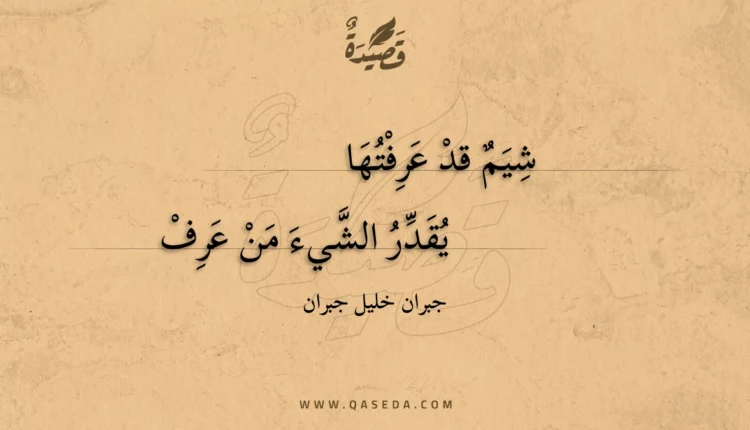 قَصِيْدَةٌ
شِيَمٌ قدْ عَرِفْتُهَا
يُقَدِّرُ الشَّيءَ مَنْ عَرِفْ
جبران خليل جبران
WWW.QASEDA.COM